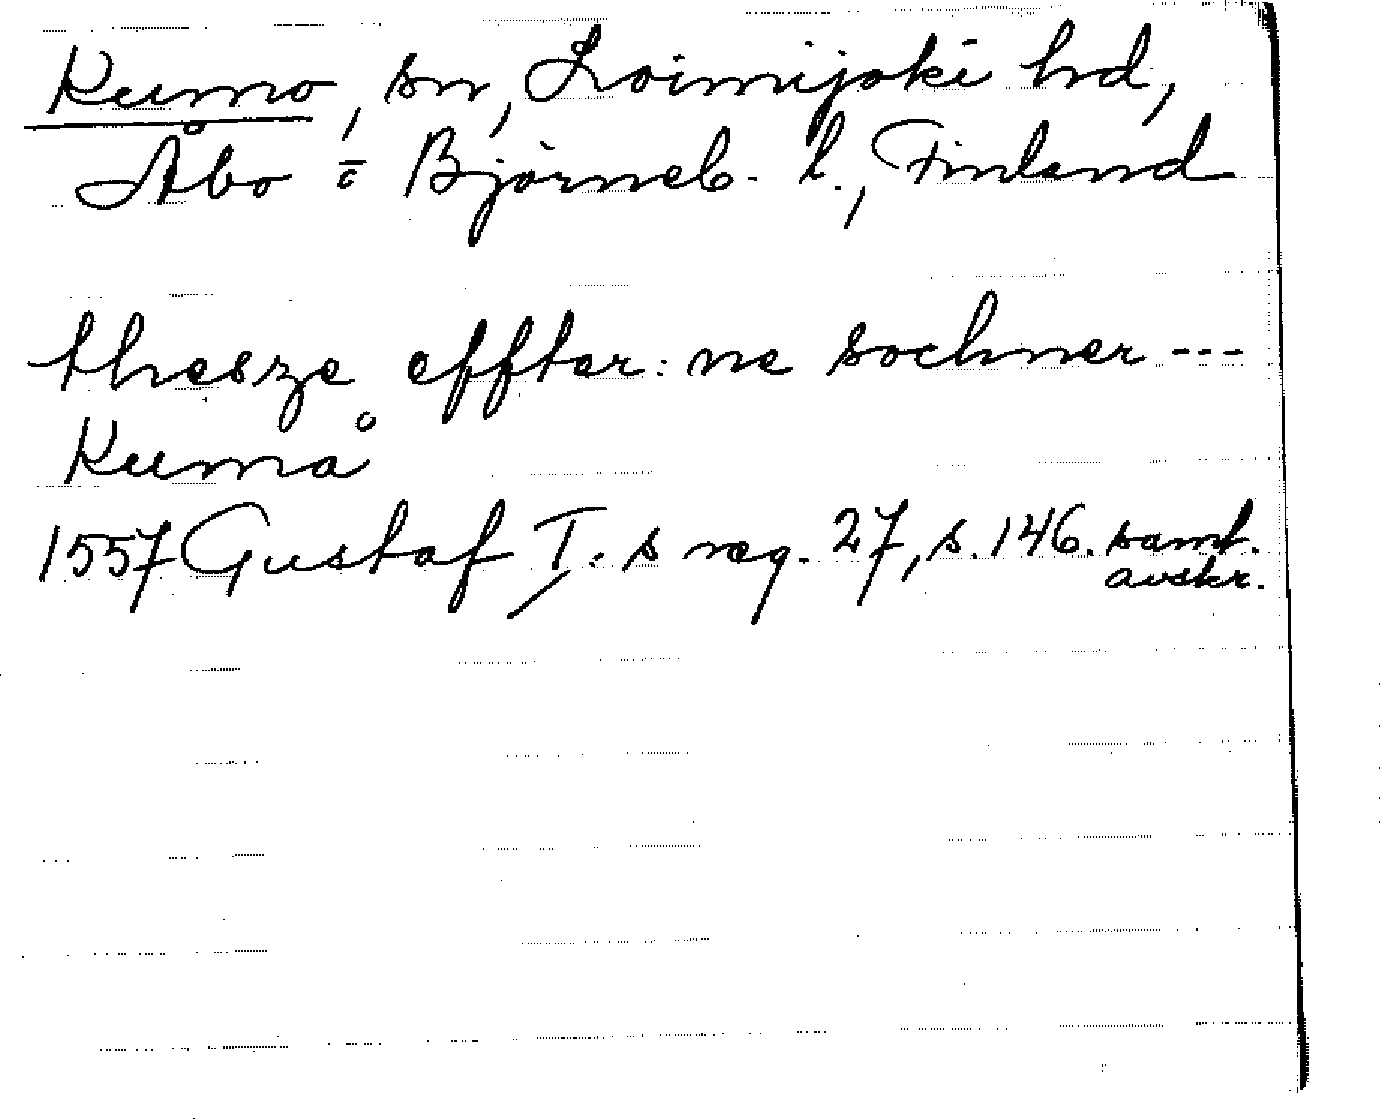 Kumo, sn, Loimijoki hd,
Åbo = Björneb. l., Finland
thesze effter: ne sochner ---
Kumå
1557 Gustaf I:s reg. 27, s. 146. samt.
avskr.